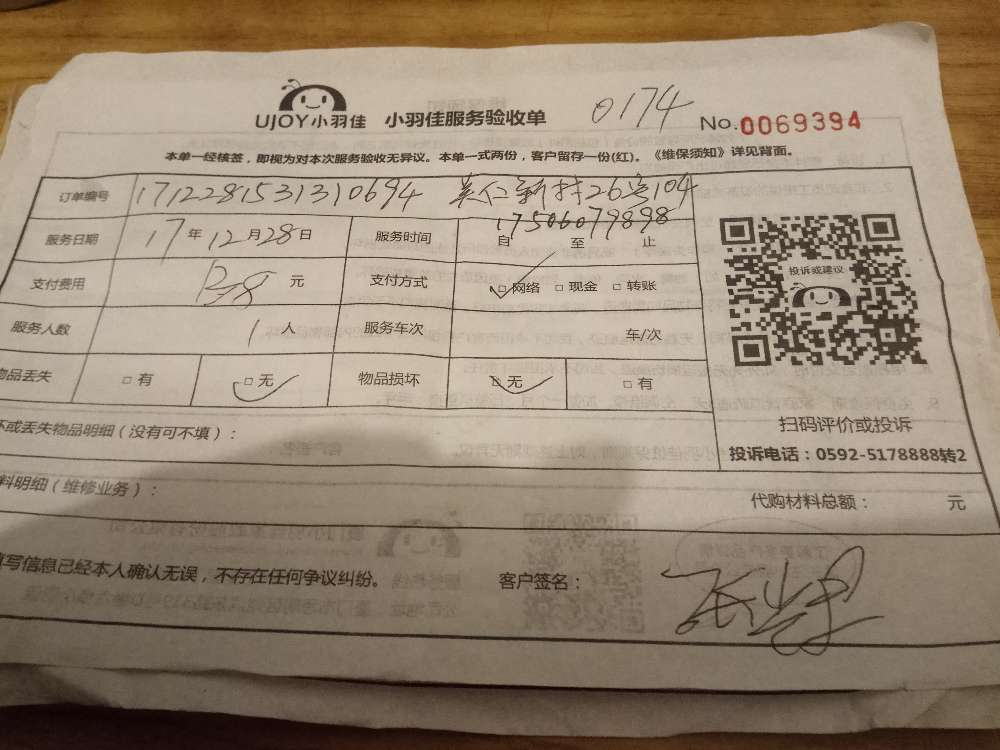 UJOY小羽佳 小羽佳服务验收单 0174 No.0069394
本单一经核签，即视为对本次服务验收无异议。本单一式两份，客户留存一份(红)。《维保须知》详见背面。
订单编号 1712281531310694 26号104
17506079898
服务日期 17年12月28日 服务时间 自 至 止
支付费用 元 支付方式 □网络 □现金 □转账
投诉或建议
服务人数 1人 服务车次 车/次
物品丢失 □有 □无 物品损坏 □无 □有
坏或丢失物品明细（没有可不填）：
扫码评价或投诉
投诉电话：0592-5178888转2
料明细（维修业务）： 代购材料总额： 元
填写信息已经本人确认无误，不存在任何争议纠纷。 客户签名：